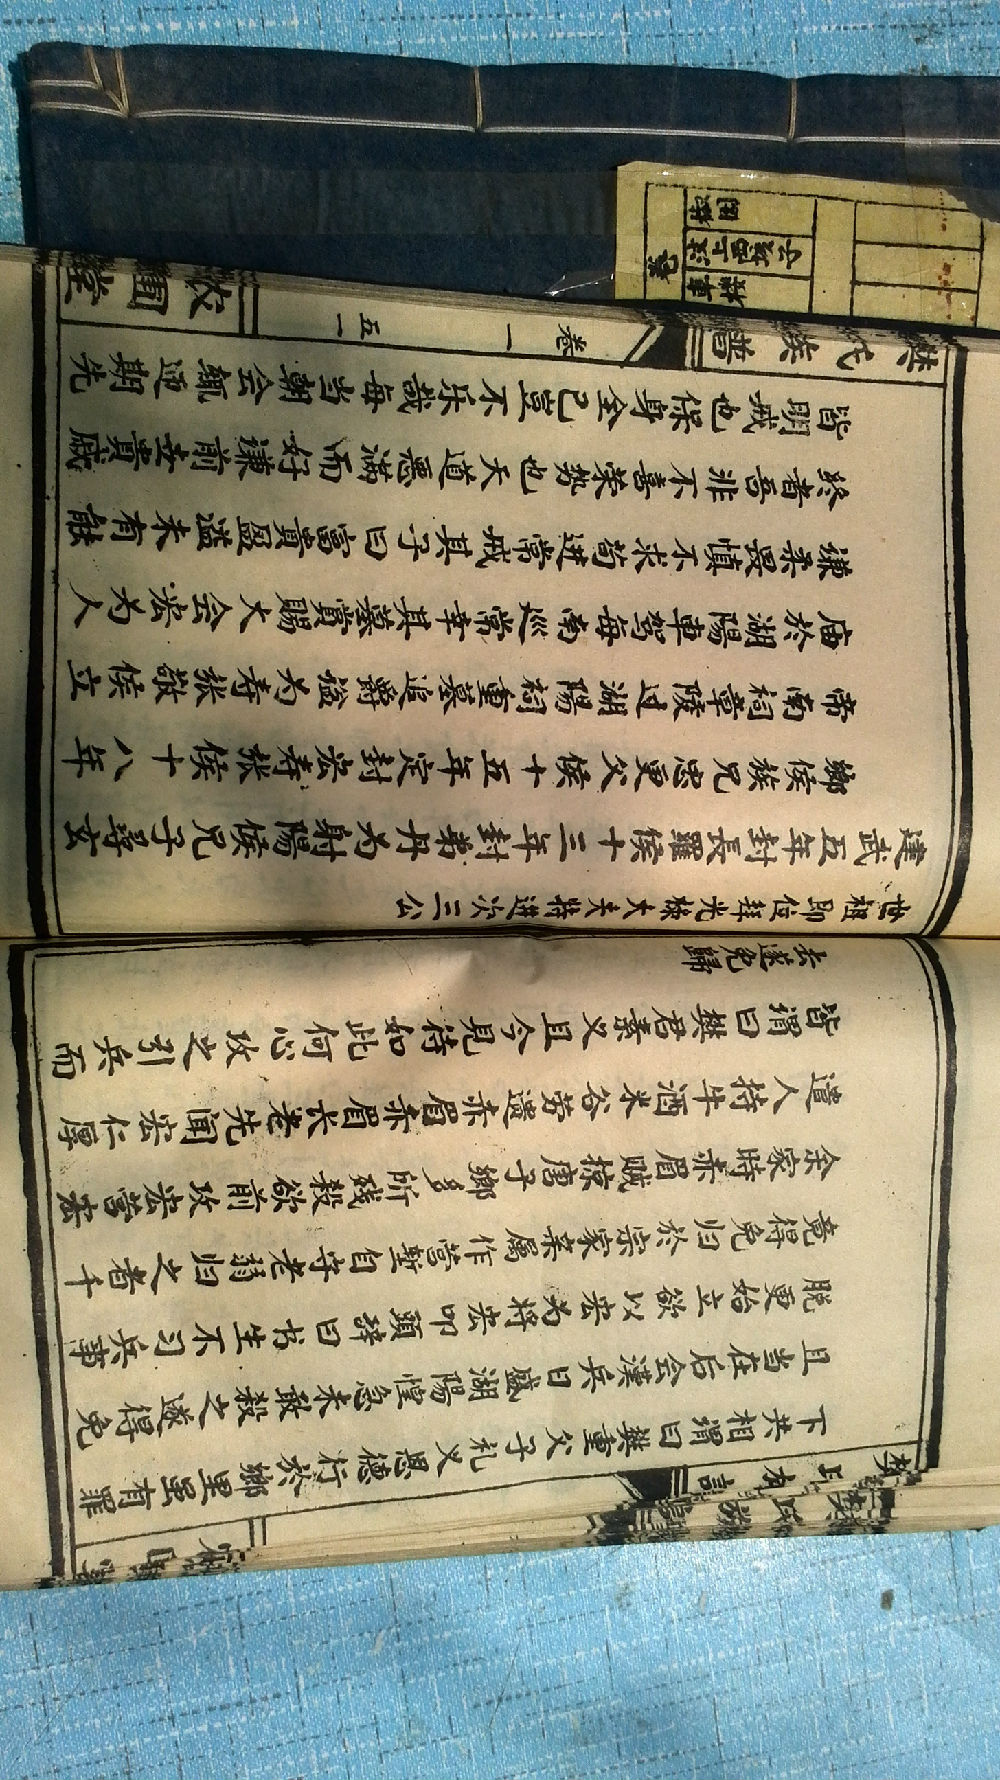 下共相謂曰樊重父子礼义恩德行於鄉里虽有罪
且当在后会漢兵日盛湖陽惶急未敢殺之遂得免
脫更始立欲以宏为將宏叩頭辞曰书生不习兵事
竟得免归於宗家亲属作營塹自守老弱归之者千
余家時赤眉贼掠唐子鄉多所殘殺欲前攻宏營宏
遣人持牛酒米谷劳遗赤眉赤眉长老先闻宏仁厚
皆謂曰樊君素义且今見待如此何心攻之引兵而
去遂免歸
世祖即位拜光祿大夫特進次三公
建武五年封長羅侯十三年封弟丹为射陽侯兄子尋玄
鄉侯族兄忠更父侯十五年定封宏寿张侯十八年
帝南祠章陵过湖陽祠重墓追爵谥为寿张敬侯立
庙於湖陽車驾每南巡常幸其墓賞賜大会宏为人
谦柔畏慎不求苟进常戒其子曰富貴盈溢未有能
終者吾非不喜荣勢也天道惡滿而好谦前世貴戚
皆明戒也保身全己豈不乐哉每当朝会輒迎期先
樊氏族譜
卷一
五一